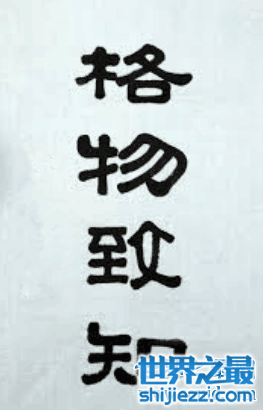 格物致知
世界之最
shijiezz.com